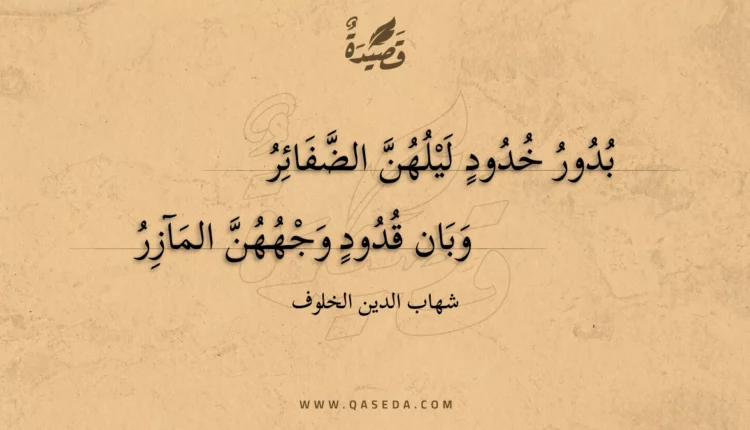 قَصِيدَةٌ
بُدُورُ خُدُودٍ لَيْلُهُنَّ الضَّفَائِرُ
وَبَان قُدُودٍ وَجْهُهُنَّ المَآزِرُ
شهاب الدين الخلوف
WWW.QASEDA.COM